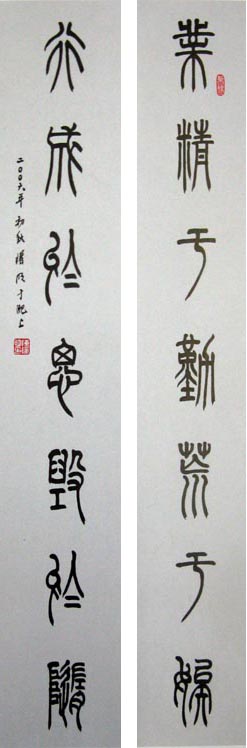 業精于勤荒于嬉
行成於思毀於隨
二〇〇六年初秋